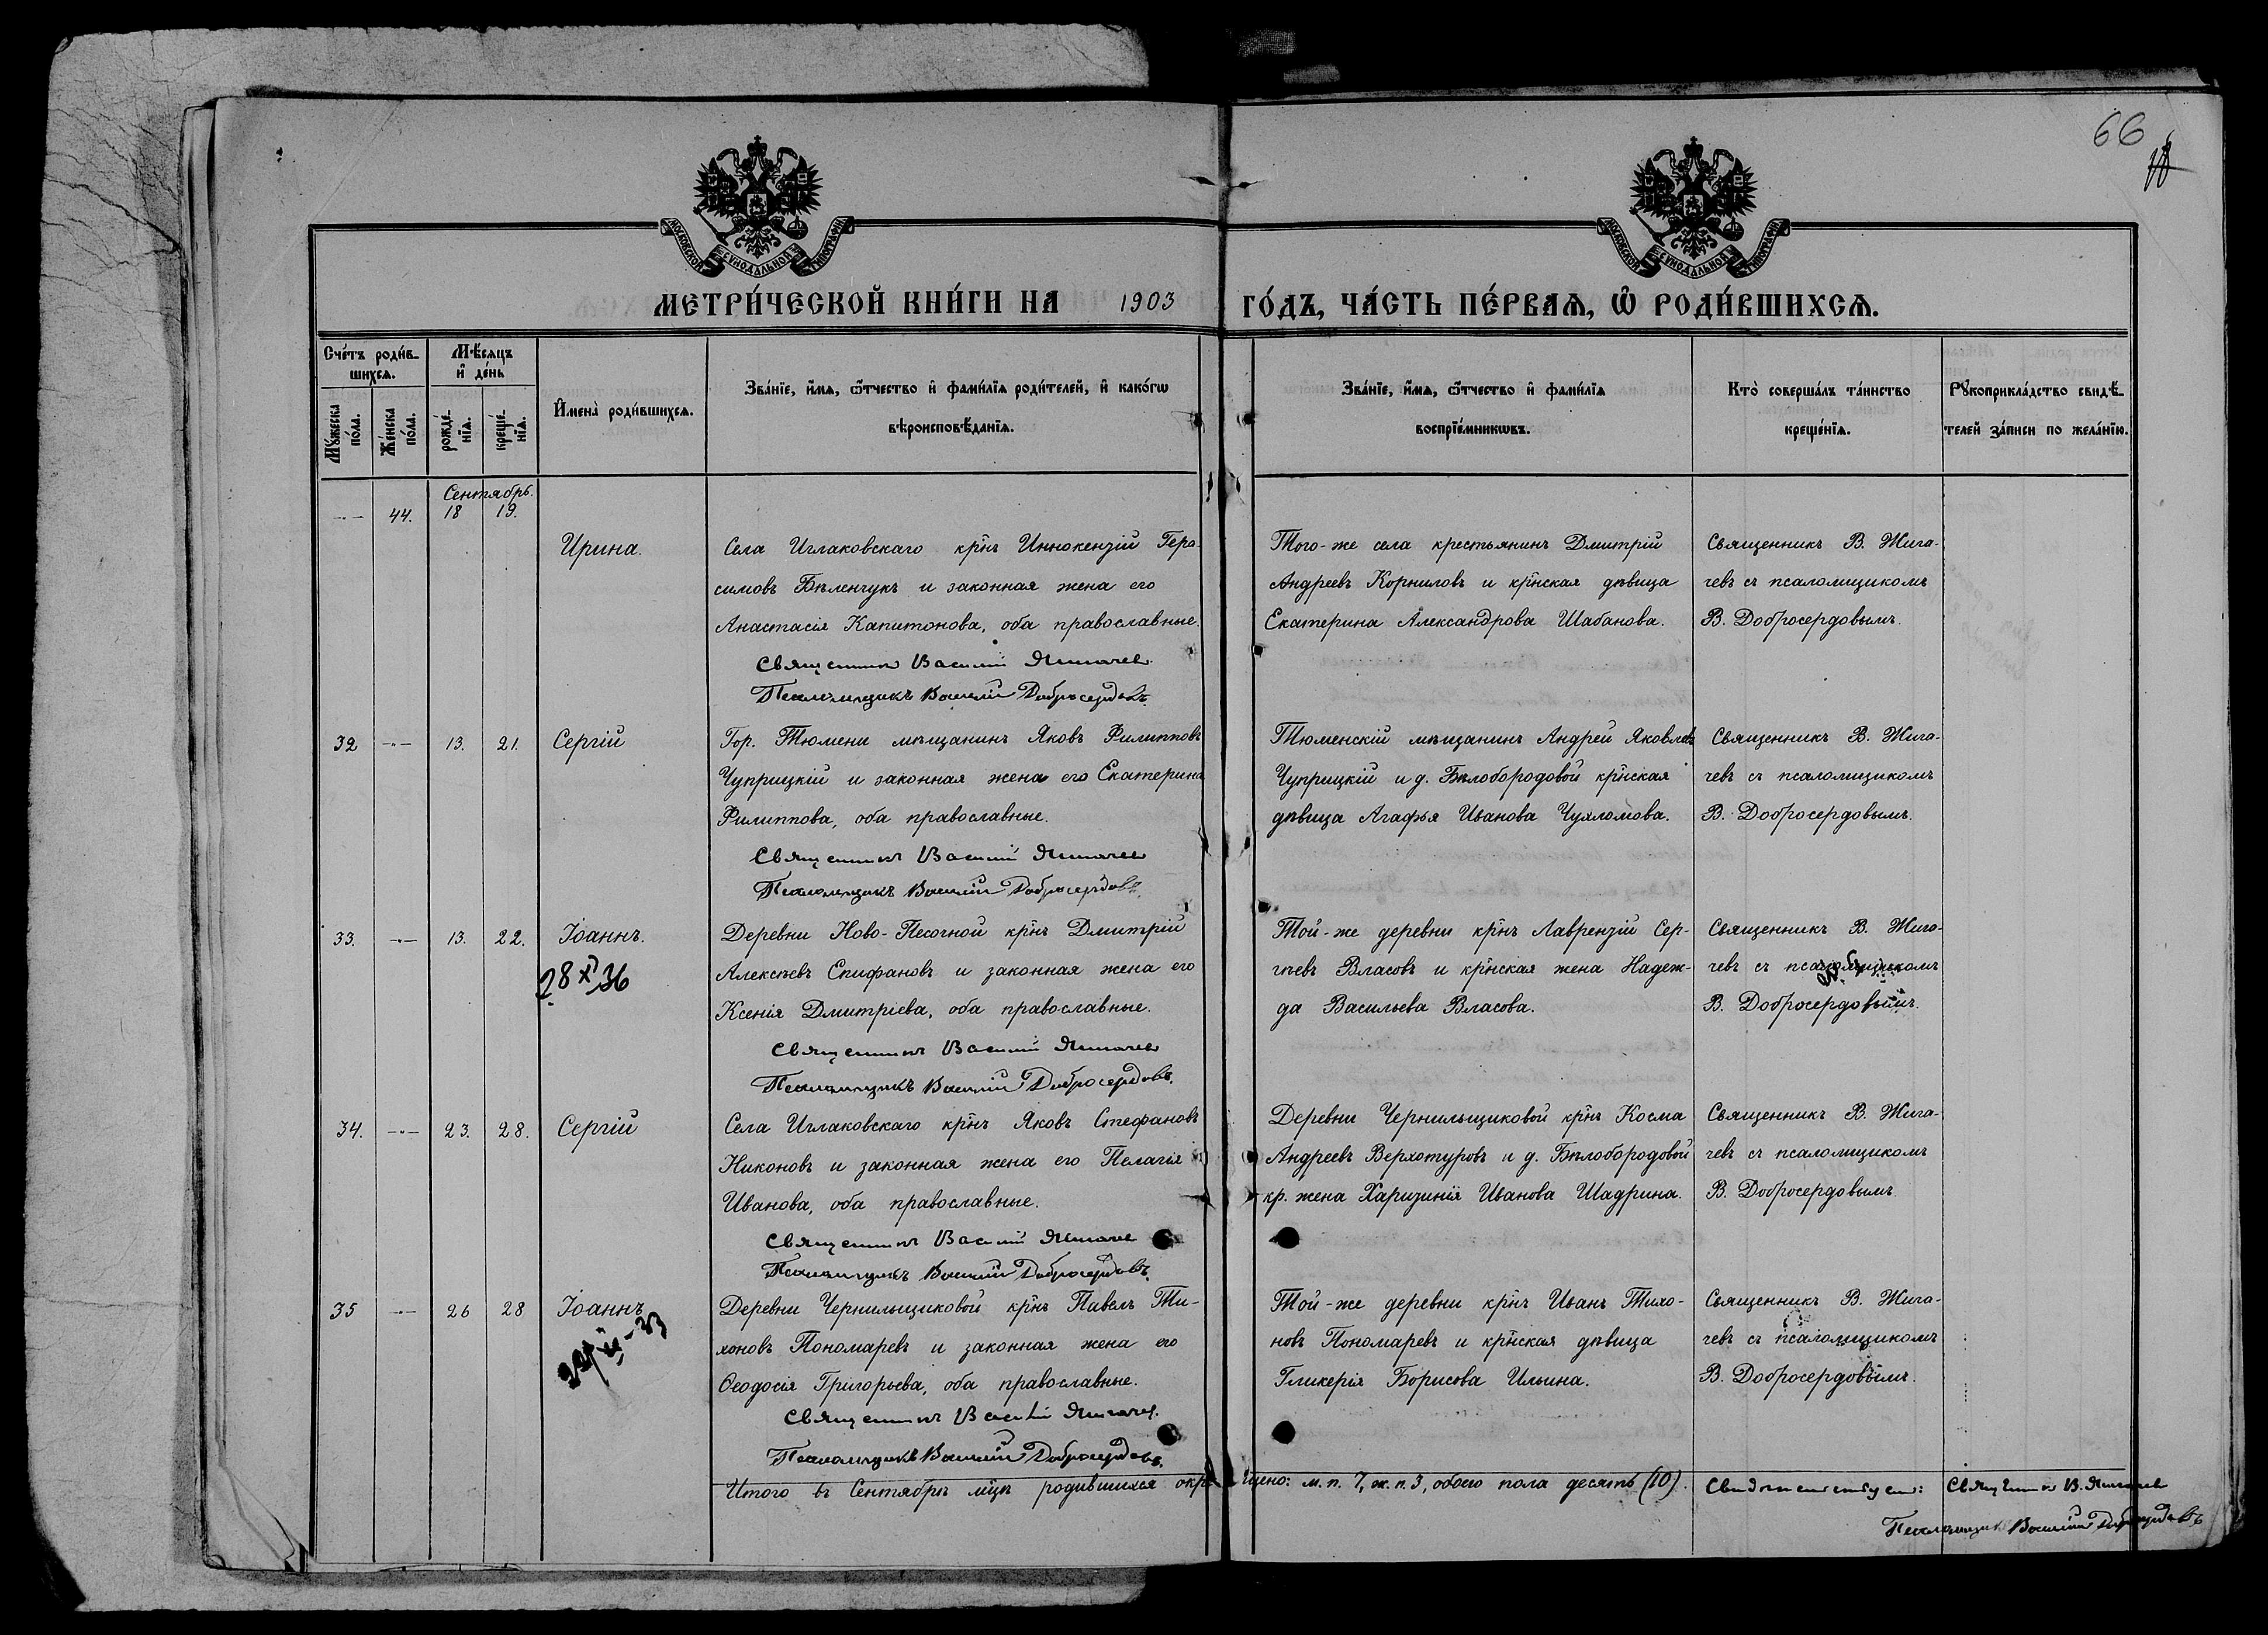 66
МОСКОВСКОЙ СѴНОДАЛЬНОЙ ТИПОГРАФІИ
МОСКОВСКОЙ СѴНОДАЛЬНОЙ ТИПОГРАФІИ
МЕТРИ́ЧЕСКОЙ КНИ́ГИ НА 1903 ГО́ДЪ, ЧА́СТЬ ПЕ́РВАѦ, Ѡ҆ РОДИ́ВШИХСѦ.
Сче́тъ роди́в-
шихсѧ.
Мѣ́сяцъ
и҆ де́нь
Мꙋ́жеска
по́ла.
Же́нска
по́ла.
рожде́-
нїѧ.
креще́-
нїѧ.
И҆мена̀ роди́вшихсѧ.
Зва́нїе, и҆́мѧ, ѻ҆́тчество и҆ фами́лїѧ роди́телей, и҆ како́гѡ
вѣроисповѣ́данїѧ.
Зва́нїе, и҆́мѧ, ѻ҆́тчество и҆ фами́лїѧ
воспрїе́мникѡвъ.
Кто̀ соверша́лъ та́инство
креще́нїѧ.
Рꙋкоприкла́дство свидѣ́-
телей за́писи по жела́нїю.
Сентябрь.
-"- 44. 18 19.
Ирина.
Села Иглаковскаго кр̃нъ Иннокентій Гера-
симовъ Бѣленчукъ и законная жена его
Анастасія Капитонова, оба православные.
Священникъ Василій Жигачев
Псаломщикъ Василій Добросердовъ.
Того-же села крестьянинъ Дмитрій
Андреевъ Корниловъ и кр̃нская дѣвица
Екатерина Александрова Шабанова.
Священникъ В. Жига-
чевъ съ псаломщикомъ
В. Добросердовымъ.
32 -"- 13. 21. Сергій
Гор. Тюмени мѣщанинъ Яковъ Филипповъ
Чуприцкій и законная жена его Екатерина
Филиппова, оба православные.
Священникъ Василій Жигачев
Псаломщикъ Василій Добросердовъ.
Тюменскій мѣщанинъ Андрей Яковлевъ
Чуприцкій и д. Бѣлобородовой кр̃нская
дѣвица Агафья Иванова Чухломова.
Священникъ В. Жига-
чевъ съ псаломщикомъ
В. Добросердовымъ.
33. -"- 13. 22. Іоаннъ.
28 XI 36
Деревни Ново-Песочной кр̃нъ Дмитрій
Алексѣевъ Епифановъ и законная жена его
Ксенія Дмитріева, оба православные.
Священникъ Василій Жигачев
Псаломщикъ Василій Добросердовъ.
Той-же деревни кр̃нъ Лаврентій Сер-
гѣевъ Власовъ и кр̃нская жена Надеж-
да Васильева Власова.
Священникъ В. Жига-
чевъ съ псаломщикомъ
В. Добросердовымъ.
34. -"- 23. 28. Сергій
Села Иглаковскаго кр̃нъ Яковъ Стефановъ
Никоновъ и законная жена его Пелагія
Иванова, оба православные.
Священникъ Василій Жигачев
Псаломщикъ Василій Добросердовъ.
Деревни Чернильщиковой кр̃нъ Косма
Андреевъ Верхотуровъ и д. Бѣлобородовой
кр. жена Харитинія Иванова Шадрина.
Священникъ В. Жига-
чевъ съ псаломщикомъ
В. Добросердовымъ.
35 -"- 26 28 Іоаннъ
Деревни Чернильщиковой кр̃нъ Павелъ Ти-
хоновъ Пономаревъ и законная жена его
Ѳеодосія Григорьева, оба православные.
Священникъ Василій Жигачев
Псаломщикъ Василій Добросердовъ.
Той-же деревни кр̃нъ Иванъ Тихо-
новъ Пономаревъ и кр̃нская дѣвица
Гликерія Борисова Ильина.
Священникъ В. Жига-
чевъ съ псаломщикомъ
В. Добросердовымъ.
Итого въ Сентябрѣ мц̃ѣ родившихся окрещено: м. п. 7, ж. п. 3, обоего пола десять (10).
Свидѣтельствуем: Священник В. Жигачев
Псаломщикъ Василій Добросердовъ